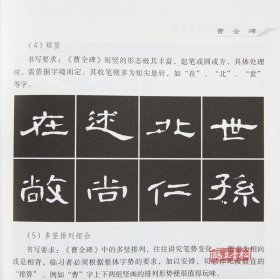 曹全碑
(4) 短竖
书写要求:《曹全碑》短竖的形态极其丰富,起笔或圆或方,具体处理
时,需依据字境而定,其收笔则多为短尖悬针,如“在”、“北”、“世”
等字。
在 述 北 世
敞 尚 仁 孫
(5) 多竖排列组合
书写要求:《曹全碑》中的多竖排列,往往讲究笔势变化,
或是相背,临习者必须根据整体字势的要求,加以安排,切忌作
“排算”,例如“曹”字上下两组竖画的排列形势便很值得玩味。